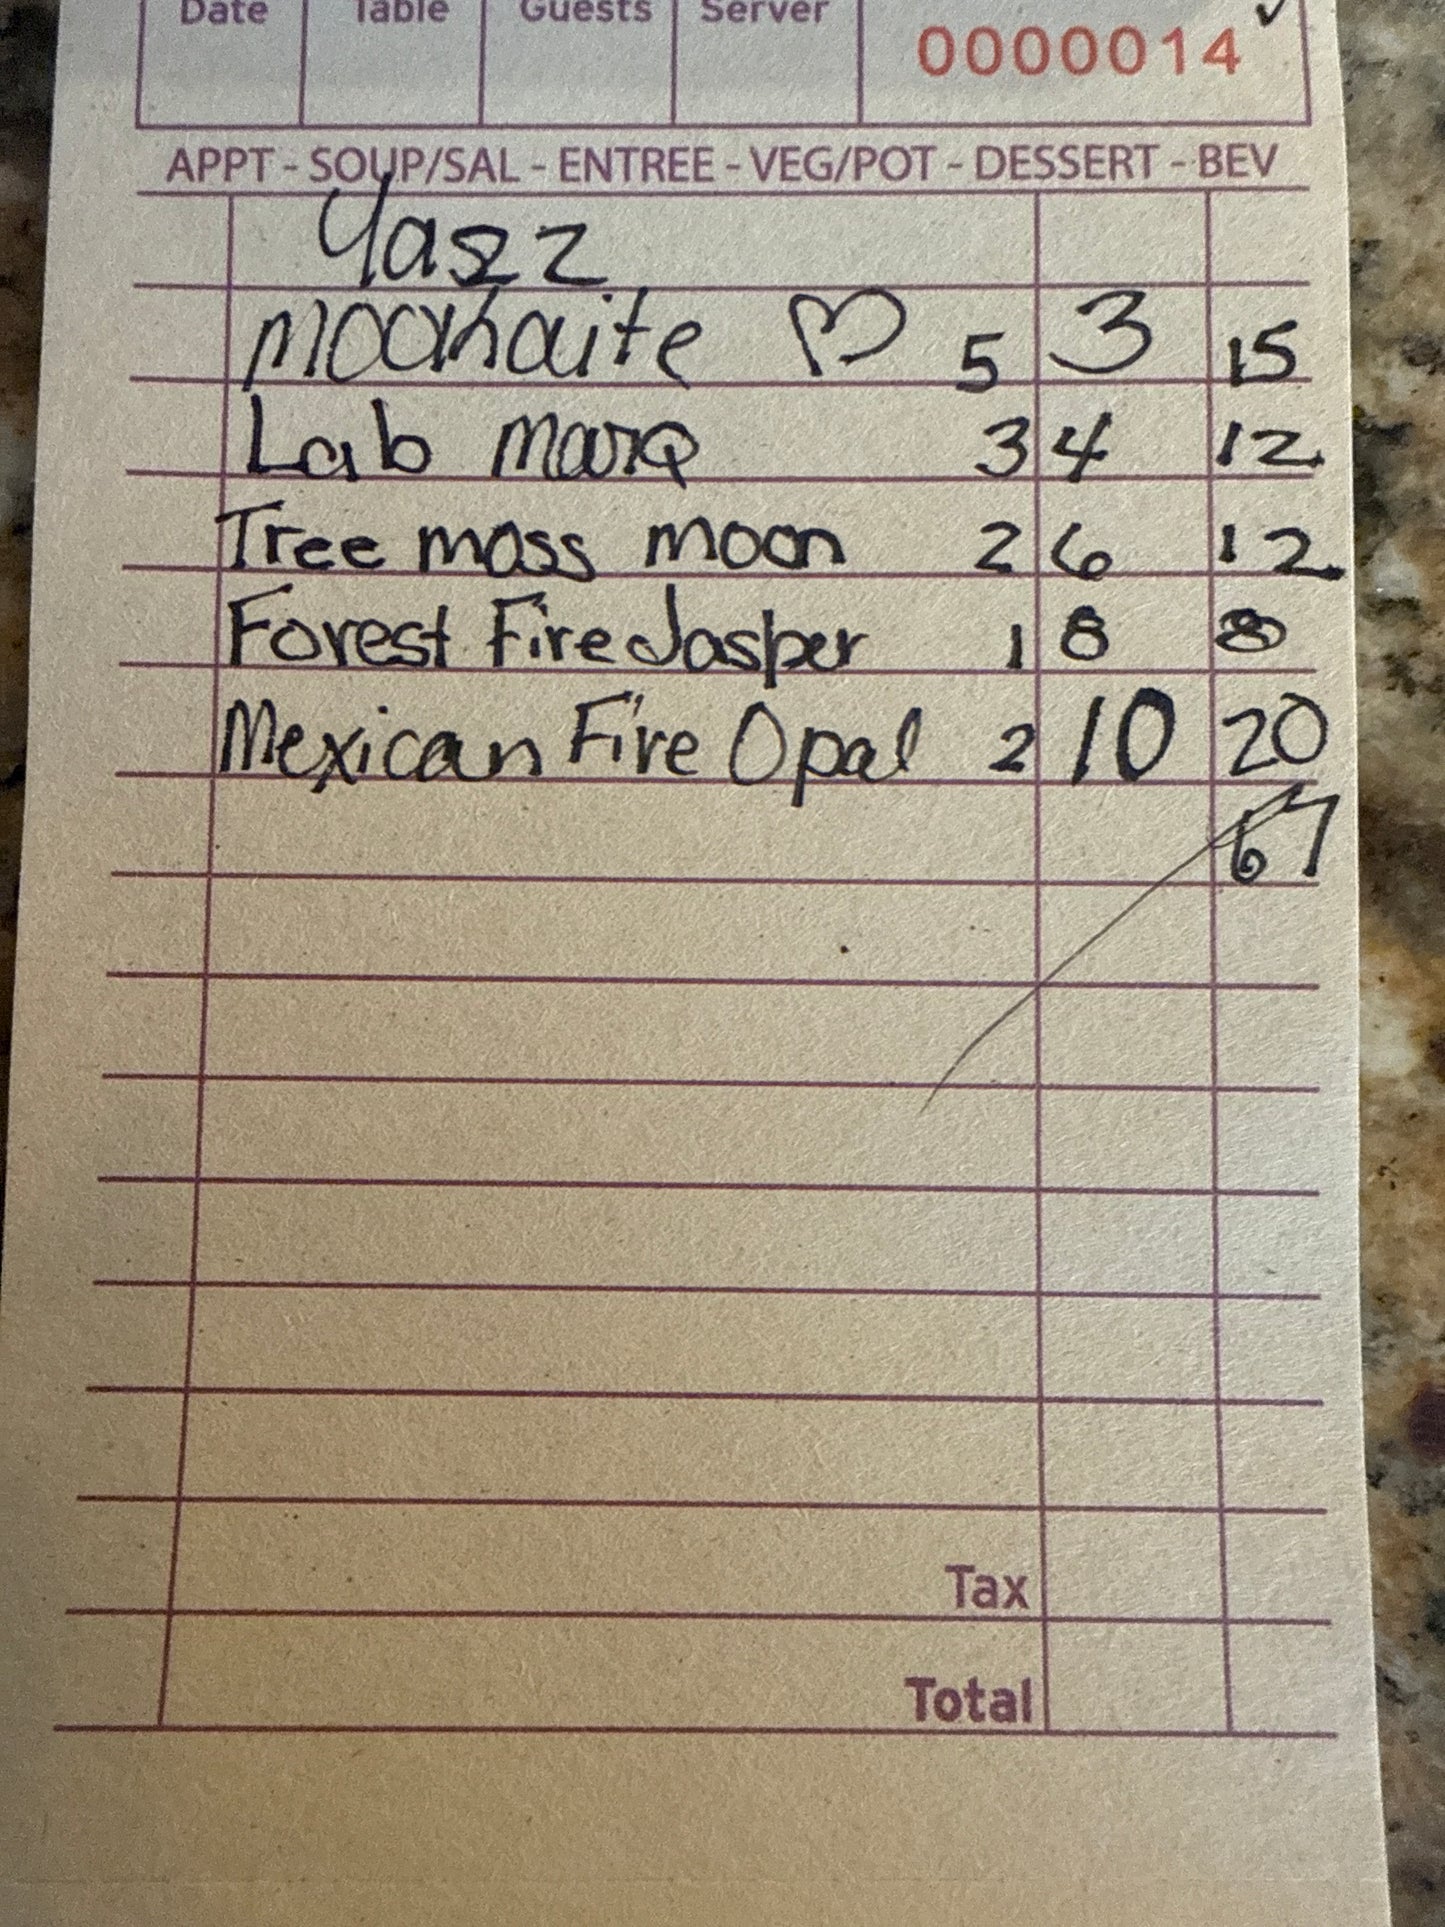 Date Table Guests Server
0000014
APPT - SOUP/SAL - ENTREE - VEG/POT - DESSERT - BEV
Yasz
mookaite ♡ 5 3 15
Lab marq 3 4 12
Tree moss moon 2 6 12
Forest Fire Jasper 1 8 8
Mexican Fire Opal 2 10 20
67
Tax
Total